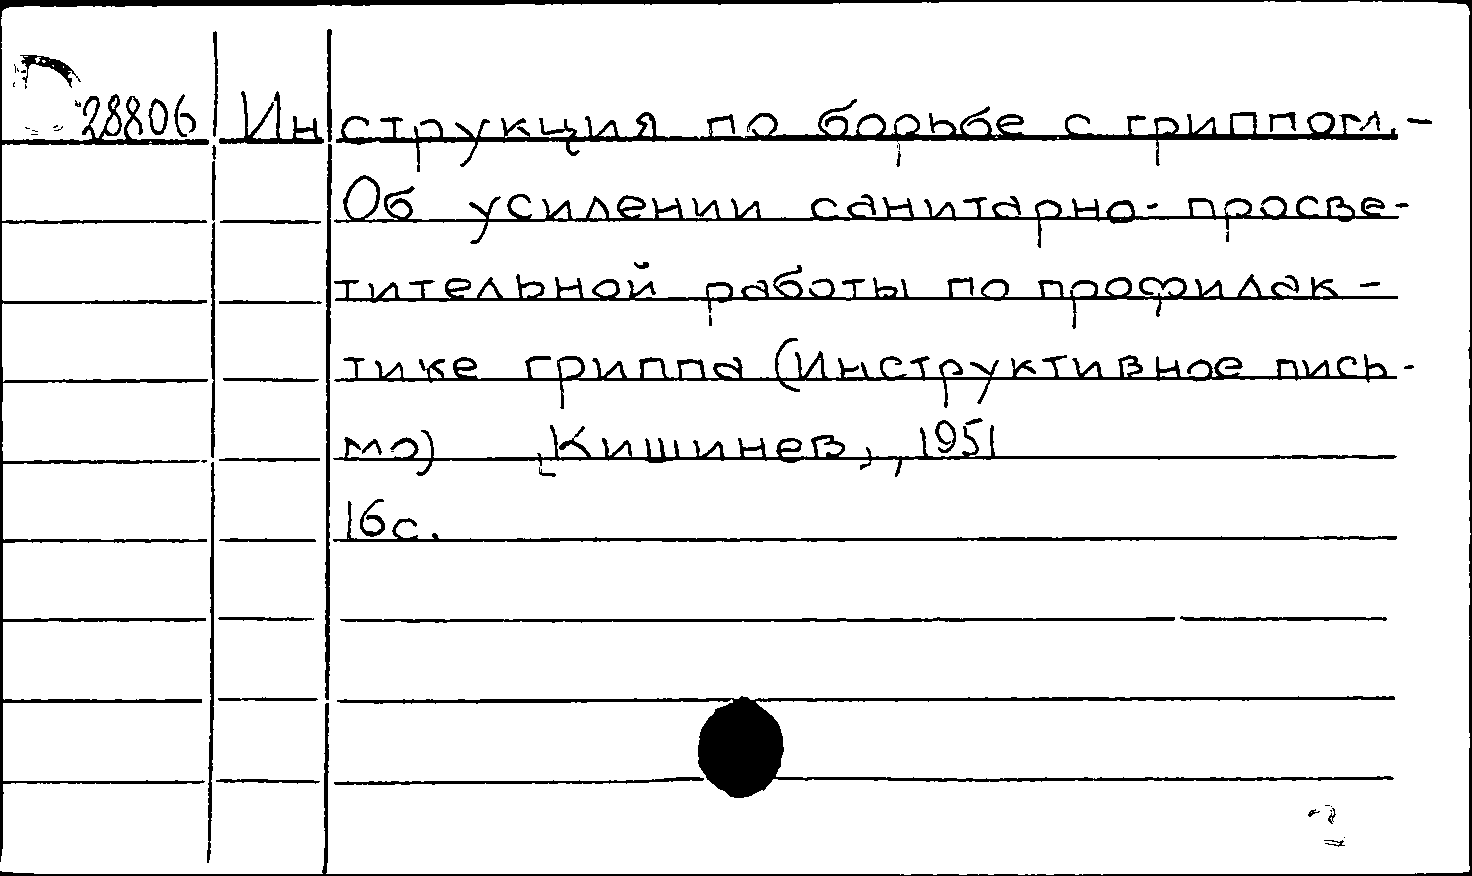 28806 Инструкция по борьбе с гриппом.-
Об усилении санитарно- просве-
тительной работы по профилак-
тике гриппа (Инструктивное пись-
мо) [Кишинев], 1951
16с.